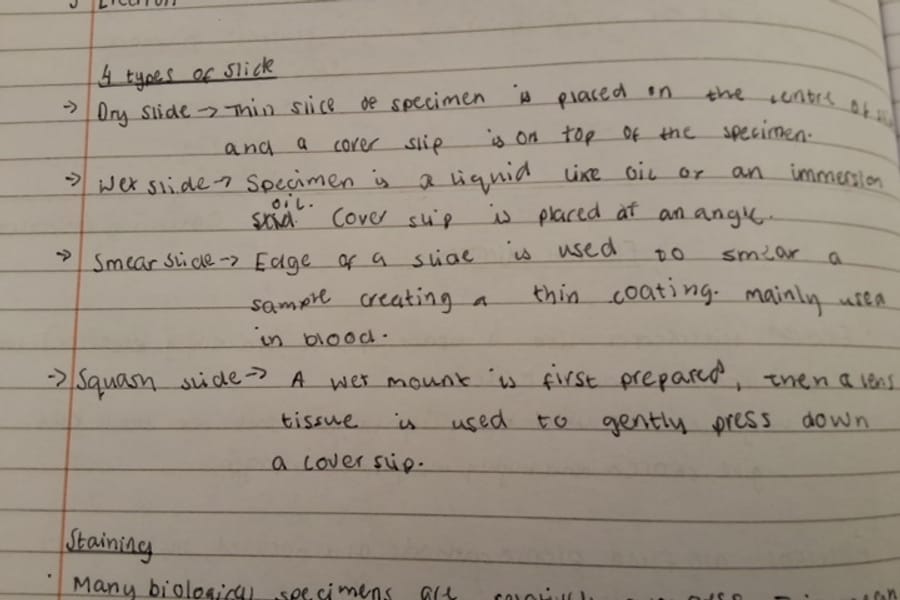 4 types of slide
→ Dry slide → Thin slice of specimen is placed on the centre of
and a cover slip is on top of the specimen.
→ Wet slide → Specimen is a liquid like oil or an immersion
oil.
cover slip is placed at an angle.
→ Smear slide → Edge of a slide is used to smear a
sample creating a thin coating. mainly used
in blood.
→ Squash slide → A wet mount is first prepared, then a lens
tissue is used to gently press down
a cover slip.
Staining
· Many biological specimens are